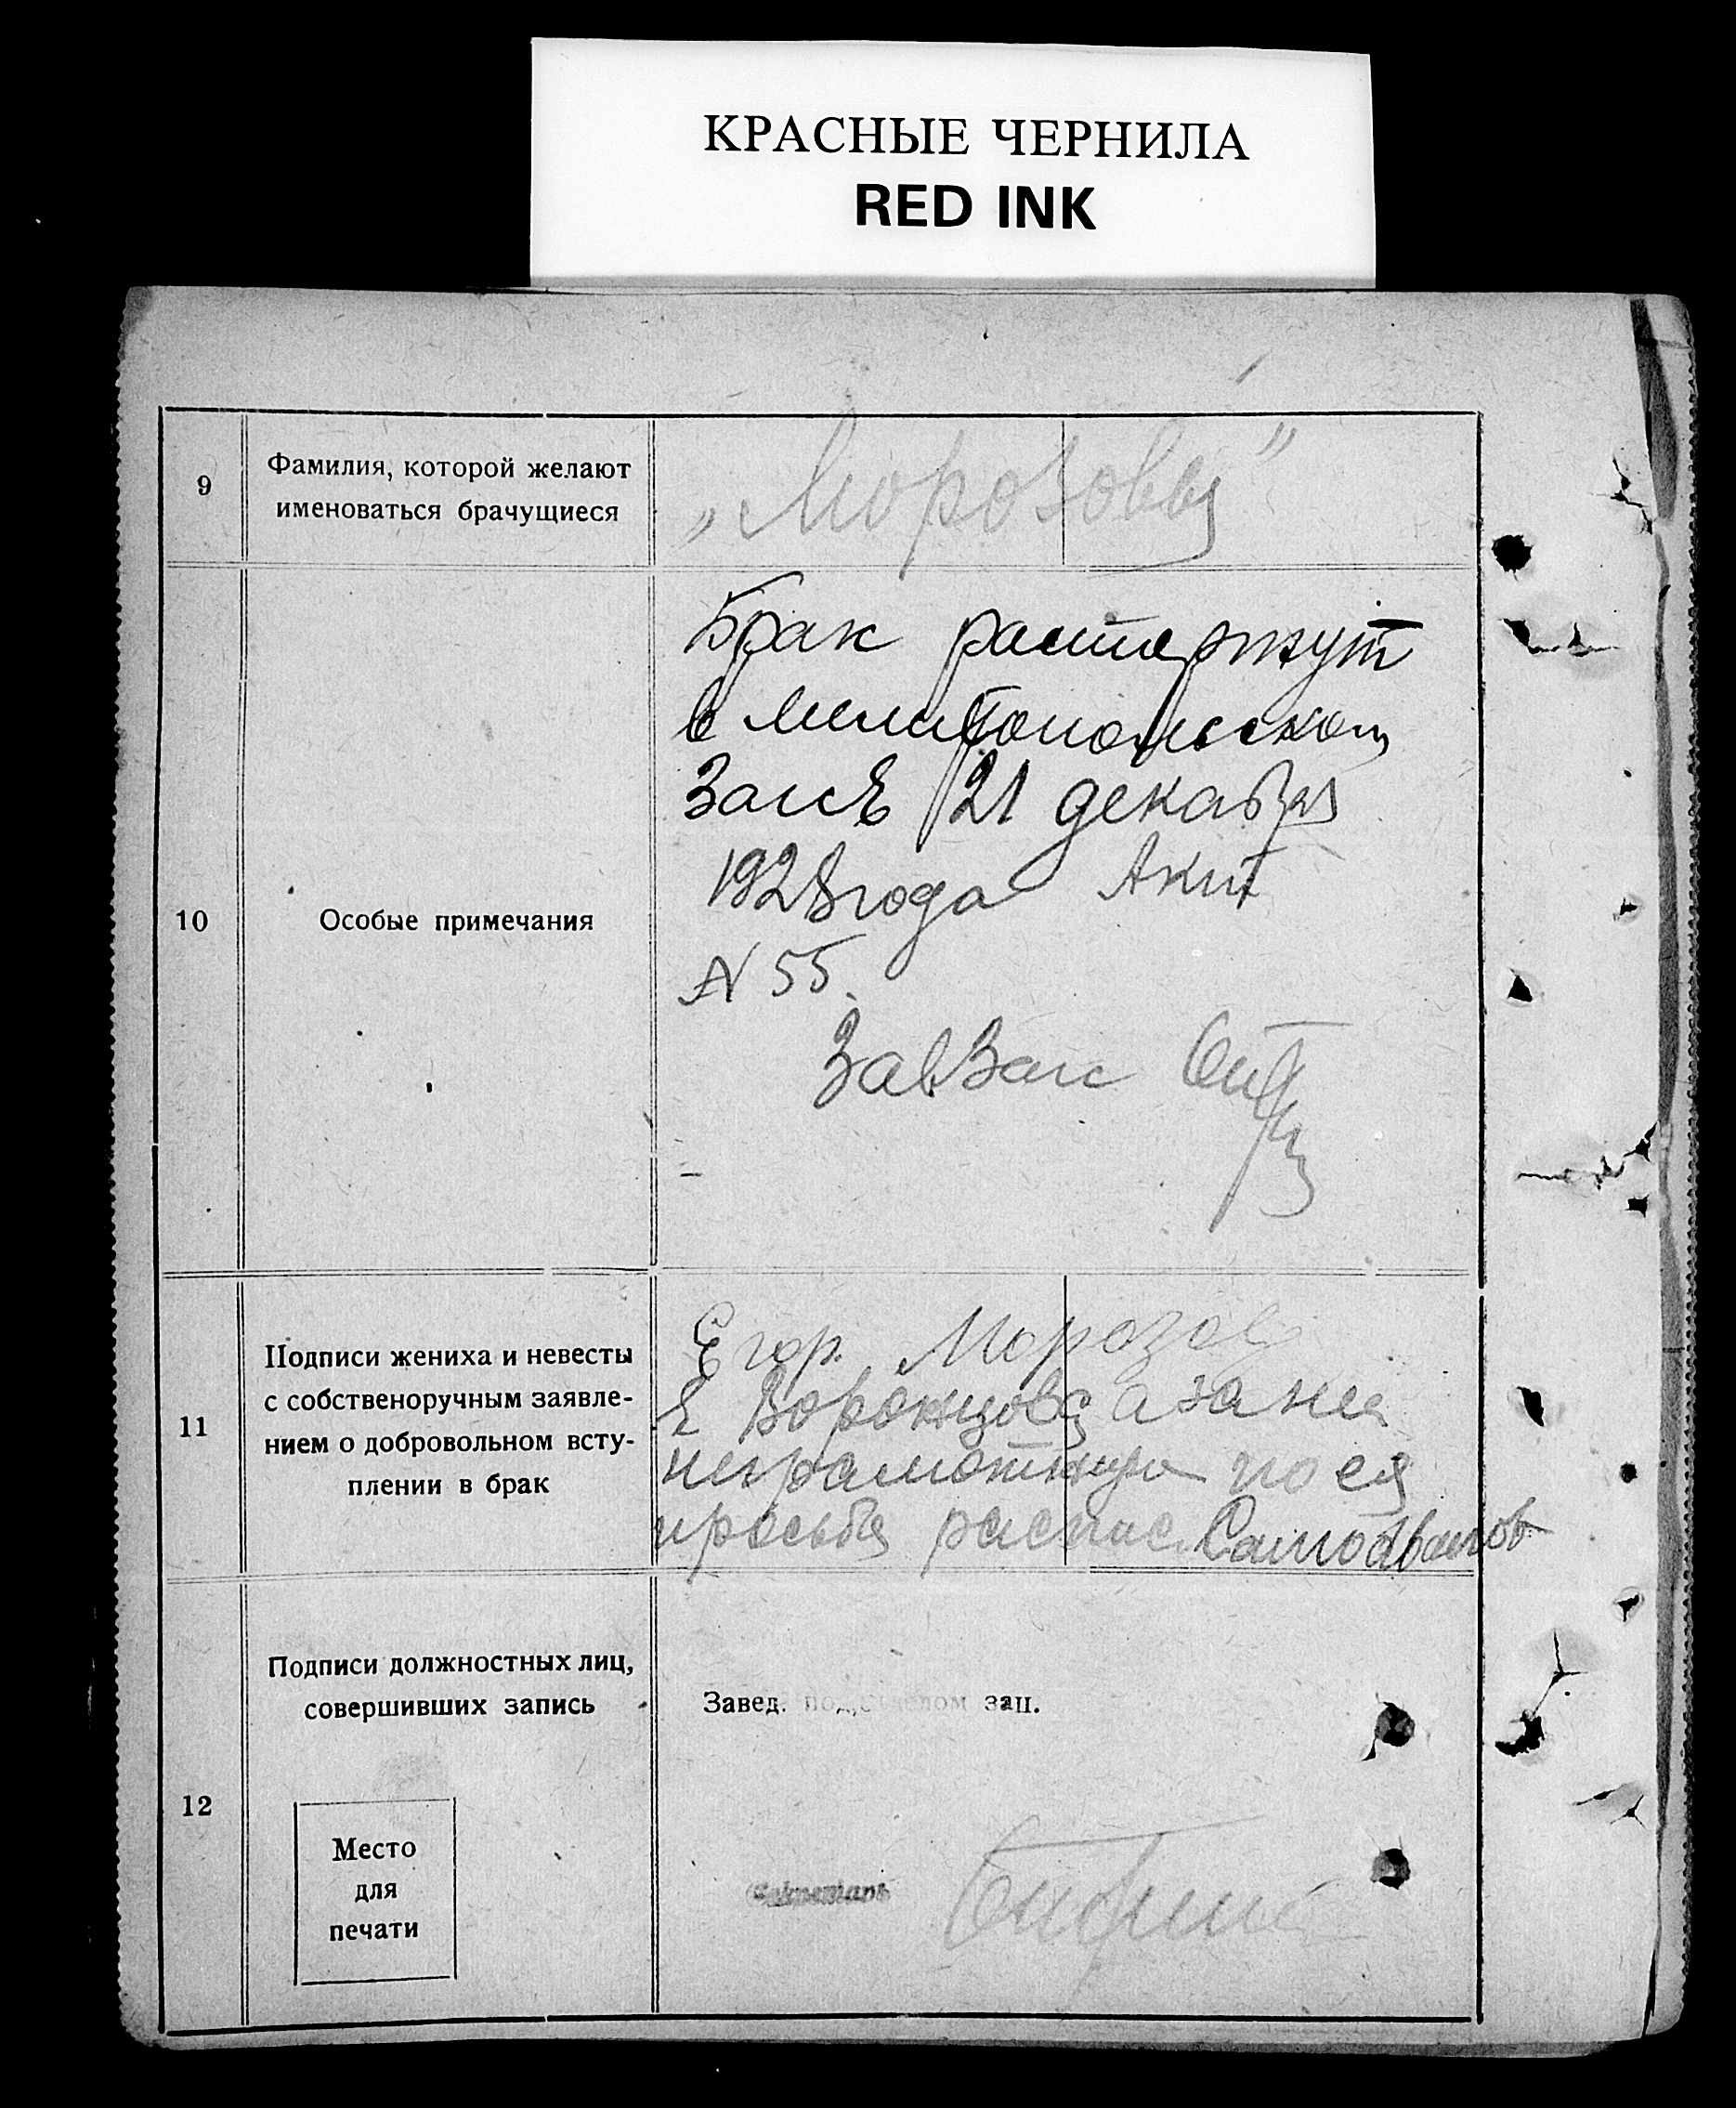 КРАСНЫЕ ЧЕРНИЛА
RED INK
9
Фамилия, которой желают
именоваться брачущиеся
„Морозовы"
10
Особые примечания
Брак расторгнут
в мелитопольском
Загсе 21 декабря
1928 года Акт
N 55.
ЗавЗагс
11
Подписи жениха и невесты
с собственоручным заявле-
нием о добровольном всту-
плении в брак
Егор. Морозов
Е Воронцова а за нея
неграмотную по ея
просьбе распис. Самодвалов
12
Подписи должностных лиц,
совершивших запись
Завед. подотделом зап.
Секретарь
Место
для
печати